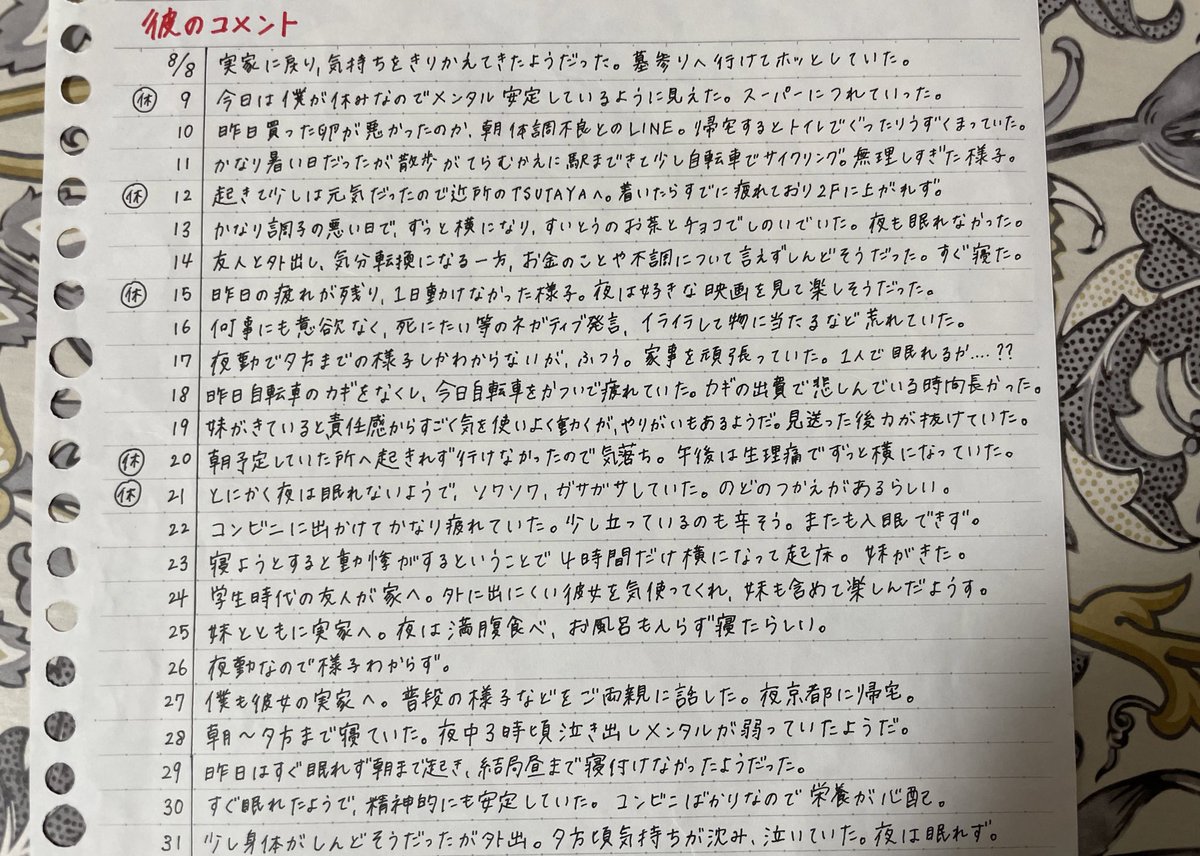 彼のコメント
8/8 実家に戻り,気持ちをきりかえてきたようだった。墓参りへ行けてホッとしていた。
休 9 今日は僕が休みなのでメンタル安定しているように見えた。スーパーにつれていった。
10 昨日買った卵が悪かったのか、朝体調不良とのLINE。帰宅するとトイレでぐったりうずくまっていた。
11 かなり暑い日だったが散歩がてらむかえに駅まできて少し自転車でサイクリング。無理しすぎた様子。
休 12 起きて少しは元気だったので近所のTSUTAYAへ。着いたらすでに疲れており2Fに上がれず。
13 かなり調子の悪い日で,ずっと横になり,すいとうのお茶とチョコでしのいでいた。夜も眠れなかった。
14 友人と外出し、気分転換になる一方,お金のことや不調について言えずしんどそうだった。すぐ寝た。
休 15 昨日の疲れが残り,1日動けなかった様子。夜は好きな映画を見て楽しそうだった。
16 何事にも意欲なく,死にたい等のネガティブ発言,イライラして物に当たるなど荒れていた。
17 夜勤で夕方までの様子しかわからないが,ふつう。家事を頑張っていた。1人で眠れるか....??
18 昨日自転車のカギをなくし、今日自転車をかついで疲れていた。カギの出費で悲しんでいる時間長かった。
19 妹がきていると責任感からすごく気を使いよく動くが、やりがいもあるようだ。見送った後力が抜けていた。
休 20 朝予定していた所へ起きれず行けなかったので気落ち。午後は生理痛でずっと横になっていた。
休 21 とにかく夜は眠れないようで,ソワソワ,ガサガサしていた。のどのつかえがあるらしい。
22 コンビニに出かけてかなり疲れていた。少し立っているのも辛そう。またも入眠できず。
23 寝ようとすると動悸がするということで4時間だけ横になって起床。妹がきた。
24 学生時代の友人が家へ。外に出にくい彼女を気使ってくれ,妹も含めて楽しんだようす。
25 妹とともに実家へ。夜は満腹食べ,お風呂も入らず寝たらしい。
26 夜勤なので様子わからず。
27 僕も彼女の実家へ。普段の様子などをご両親に話した。夜京都に帰宅。
28 朝〜夕方まで寝ていた。夜中3時頃泣き出しメンタルが弱っていたようだ。
29 昨日はすぐ眠れず朝まで起き,結局昼まで寝付けなかったようだった。
30 すぐ眠れたようで,精神的にも安定していた。コンビニばかりなので栄養が心配。
31 少し身体がしんどそうだったが外出。夕方頃気持ちが沈み、泣いていた。夜は眠れず。